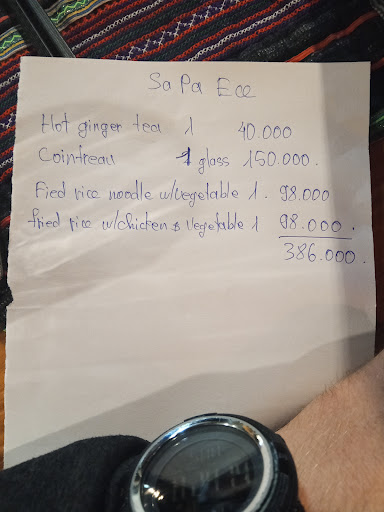 Sa Pa Ece
Hot ginger tea 1 40.000
Cointreau 1 glass 150.000.
Fied rice noodle w/vegetable 1. 98.000
fried rice w/chicken & vegetable 1 98.000.
386.000.